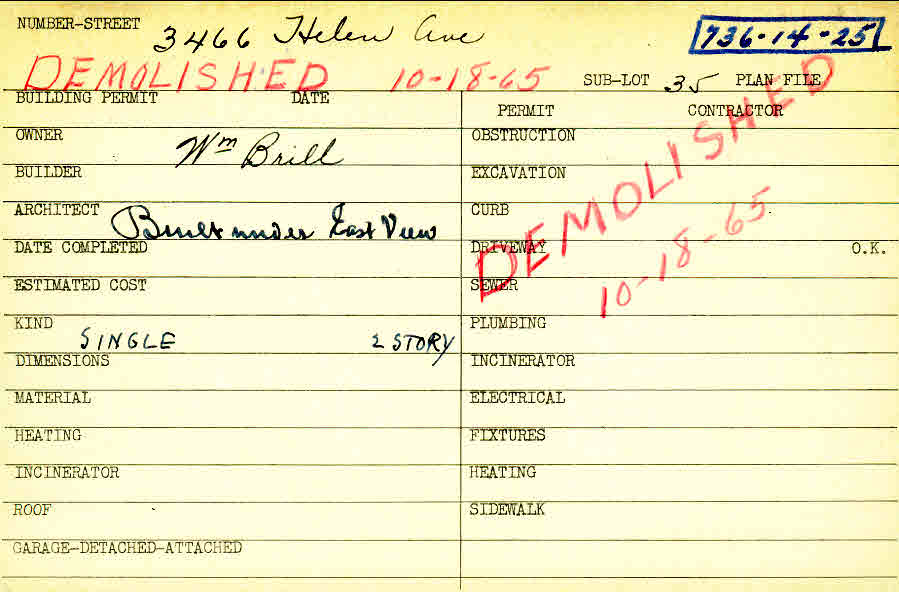 NUMBER-STREET 3466 Helen Ave 736-14-25
DEMOLISHED 10-18-65 SUB-LOT 35 PLAN FILE
BUILDING PERMIT DATE
PERMIT CONTRACTOR
OWNER Wm Brill
OBSTRUCTION
BUILDER
EXCAVATION
ARCHITECT Built under East View
CURB
DATE COMPLETED
DRIVEWAY O.K.
DEMOLISHED
10-18-65
ESTIMATED COST
SEWER
KIND SINGLE 2 STORY
PLUMBING
DIMENSIONS
INCINERATOR
MATERIAL
ELECTRICAL
HEATING
FIXTURES
INCINERATOR
HEATING
ROOF
SIDEWALK
GARAGE-DETACHED-ATTACHED